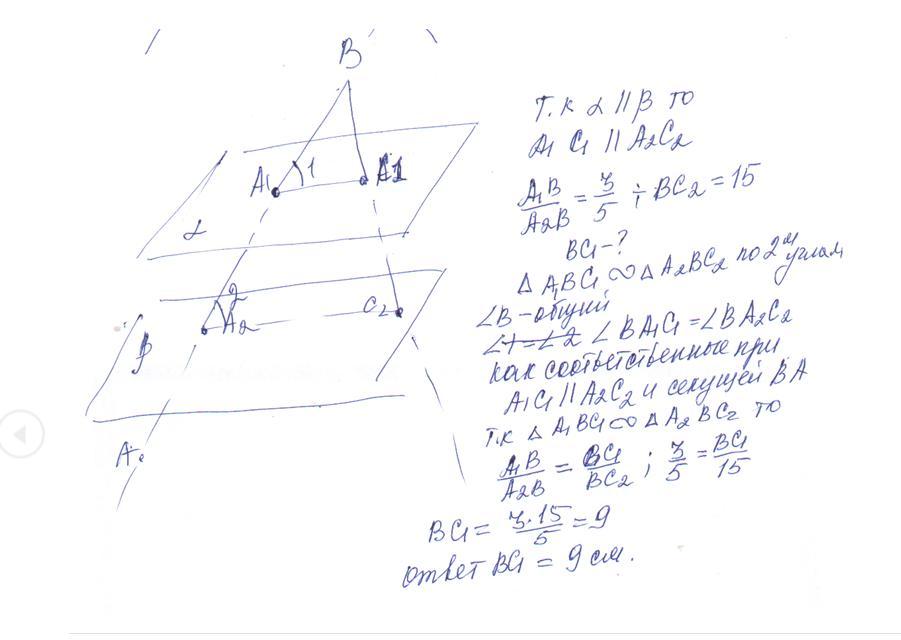 B
A₁
1
C1
α
2
A₂
C₂
β
A.
Т.к α || β то
A₁ C₁ || A₂C₂
A₁B/A₂B = 3/5 ; BC₂ = 15
BC₁ - ?
Δ A₁BC₁ ∞ Δ A₂BC₂ по 2ᵐ углам
∠B - общий
∠1=∠2 ∠BA₁C₁ = ∠BA₂C₂
как соответственные при
A₁C₁ || A₂C₂ и секущей BA
Т.к Δ A₁BC₁ ∞ Δ A₂BC₂ то
A₁B/A₂B = BC₁/BC₂ ; 3/5 = BC₁/15
BC₁ = 3·15/5 = 9
ответ BC₁ = 9 см.